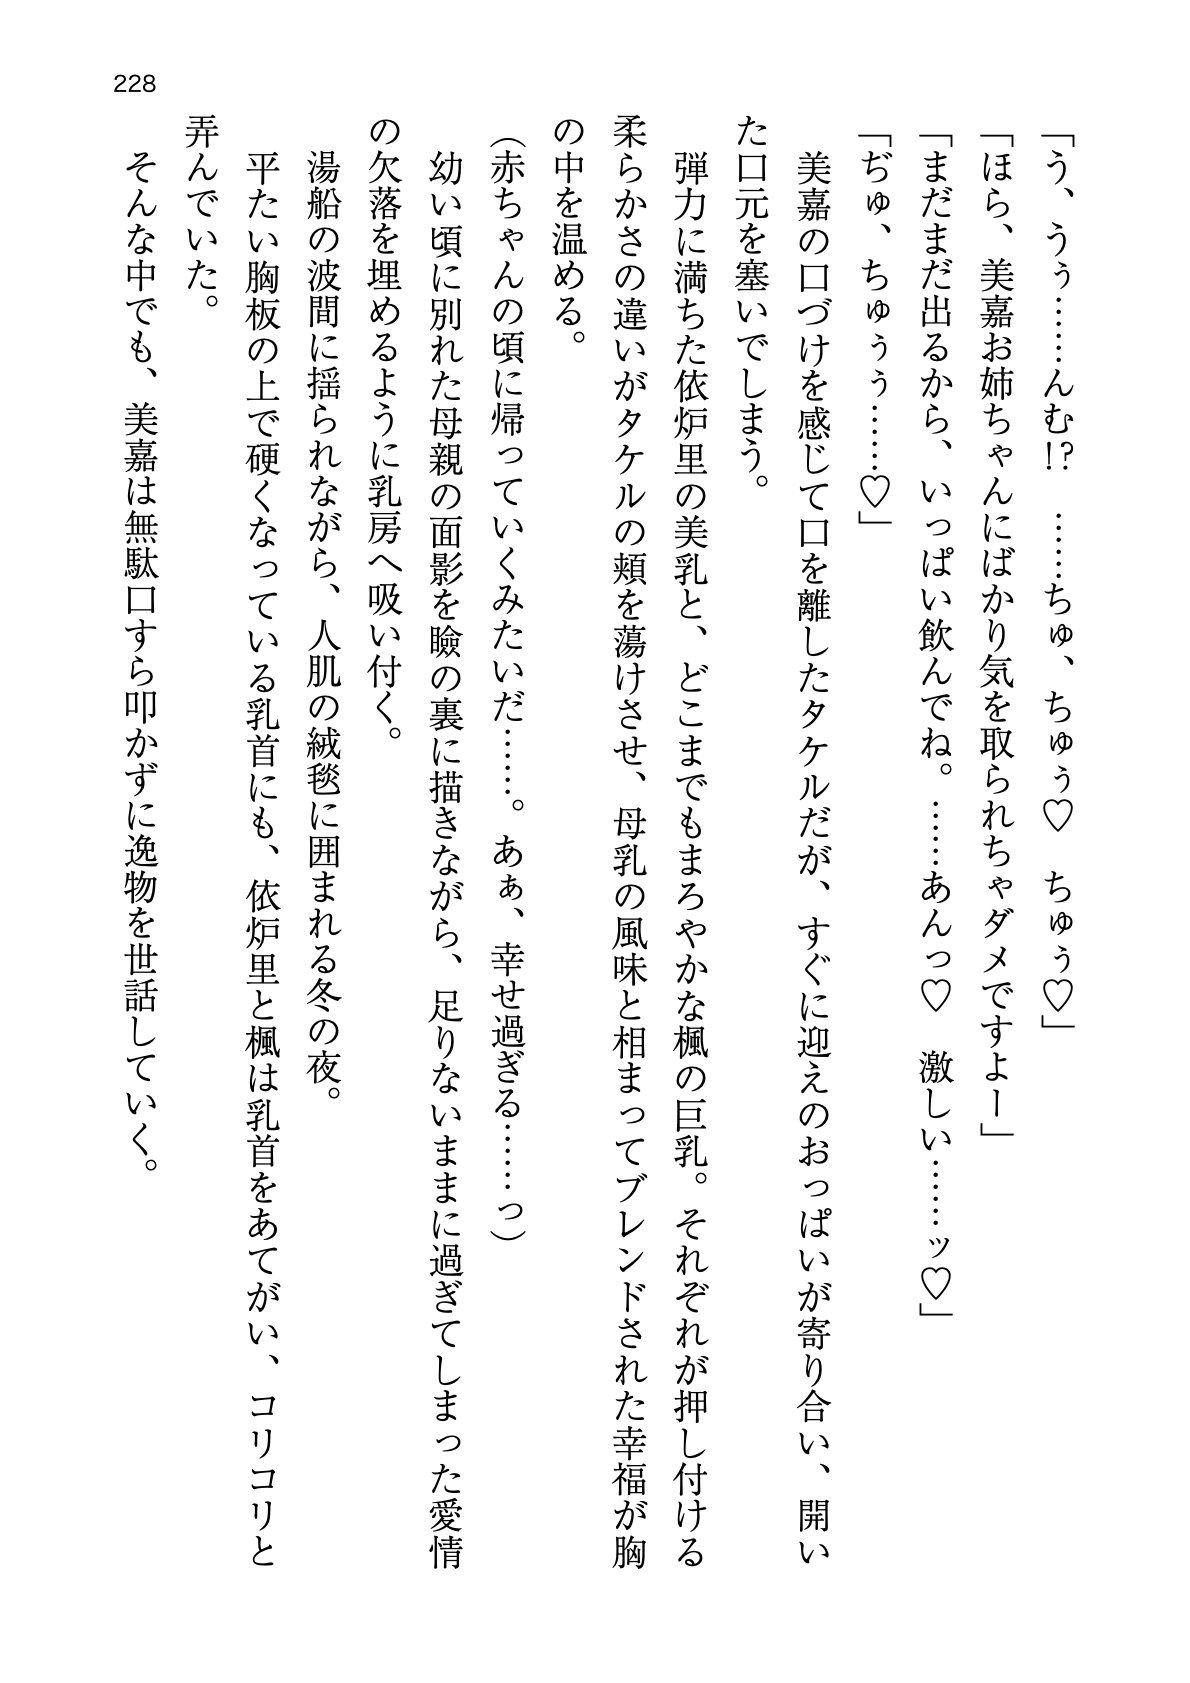 228
「う、うぅ……んむ!?　……ちゅ、ちゅぅ♡　ちゅぅ♡」
「ほら、美嘉お姉ちゃんにばかり気を取られちゃダメですよー」
「まだまだ出るから、いっぱい飲んでね。……あんっ♡　激しい……ッ♡」
「ぢゅ、ちゅぅぅ……♡」
　美嘉の口づけを感じて口を離したタケルだが、すぐに迎えのおっぱいが寄り合い、開い
た口元を塞いでしまう。
　弾力に満ちた依炉里の美乳と、どこまでもまろやかな楓の巨乳。それぞれが押し付ける
柔らかさの違いがタケルの頬を蕩けさせ、母乳の風味と相まってブレンドされた幸福が胸
の中を温める。
(赤ちゃんの頃に帰っていくみたいだ……。あぁ、幸せ過ぎる……っ)
　幼い頃に別れた母親の面影を瞼の裏に描きながら、足りないままに過ぎてしまった愛情
の欠落を埋めるように乳房へ吸い付く。
　湯船の波間に揺られながら、人肌の絨毯に囲まれる冬の夜。
　平たい胸板の上で硬くなっている乳首にも、依炉里と楓は乳首をあてがい、コリコリと
弄んでいた。
　そんな中でも、美嘉は無駄口すら叩かずに逸物を世話していく。